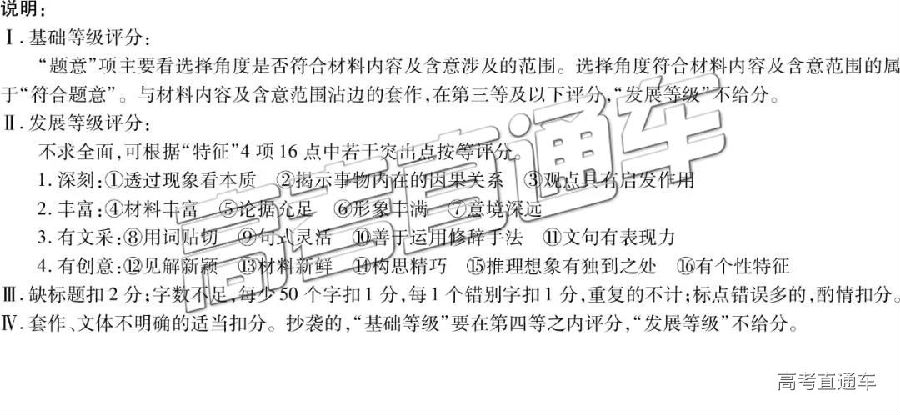 说明:
Ⅰ.基础等级评分:
“题意”项主要看选择角度是否符合材料内容及含意涉及的范围。选择角度符合材料内容及含意范围的属
于“符合题意”。与材料内容及含意范围沾边的套作,在第三等及以下评分,“发展等级”不给分。
Ⅱ.发展等级评分:
不求全面,可根据“特征”4项16点中若干突出点按等评分。
1.深刻:①透过现象看本质 ②揭示事物内在的因果关系 ③观点具有启发作用
2.丰富:④材料丰富 ⑤论据充足 ⑥形象丰满 ⑦意境深远
3.有文采:⑧用词贴切 ⑨句式灵活 ⑩善于运用修辞手法 ⑪文句有表现力
4.有创意:⑫见解新颖 ⑬材料新鲜 ⑭构思精巧 ⑮推理想象有独到之处 ⑯有个性特征
Ⅲ.缺标题扣2分;字数不足,每少50个字扣1分,每1个错别字扣1分,重复的不计;标点错误多的,酌情扣分。
Ⅳ.套作、文体不明确的适当扣分。抄袭的,“基础等级”要在第四等之内评分,“发展等级”不给分。
高考直通车
高考直通车